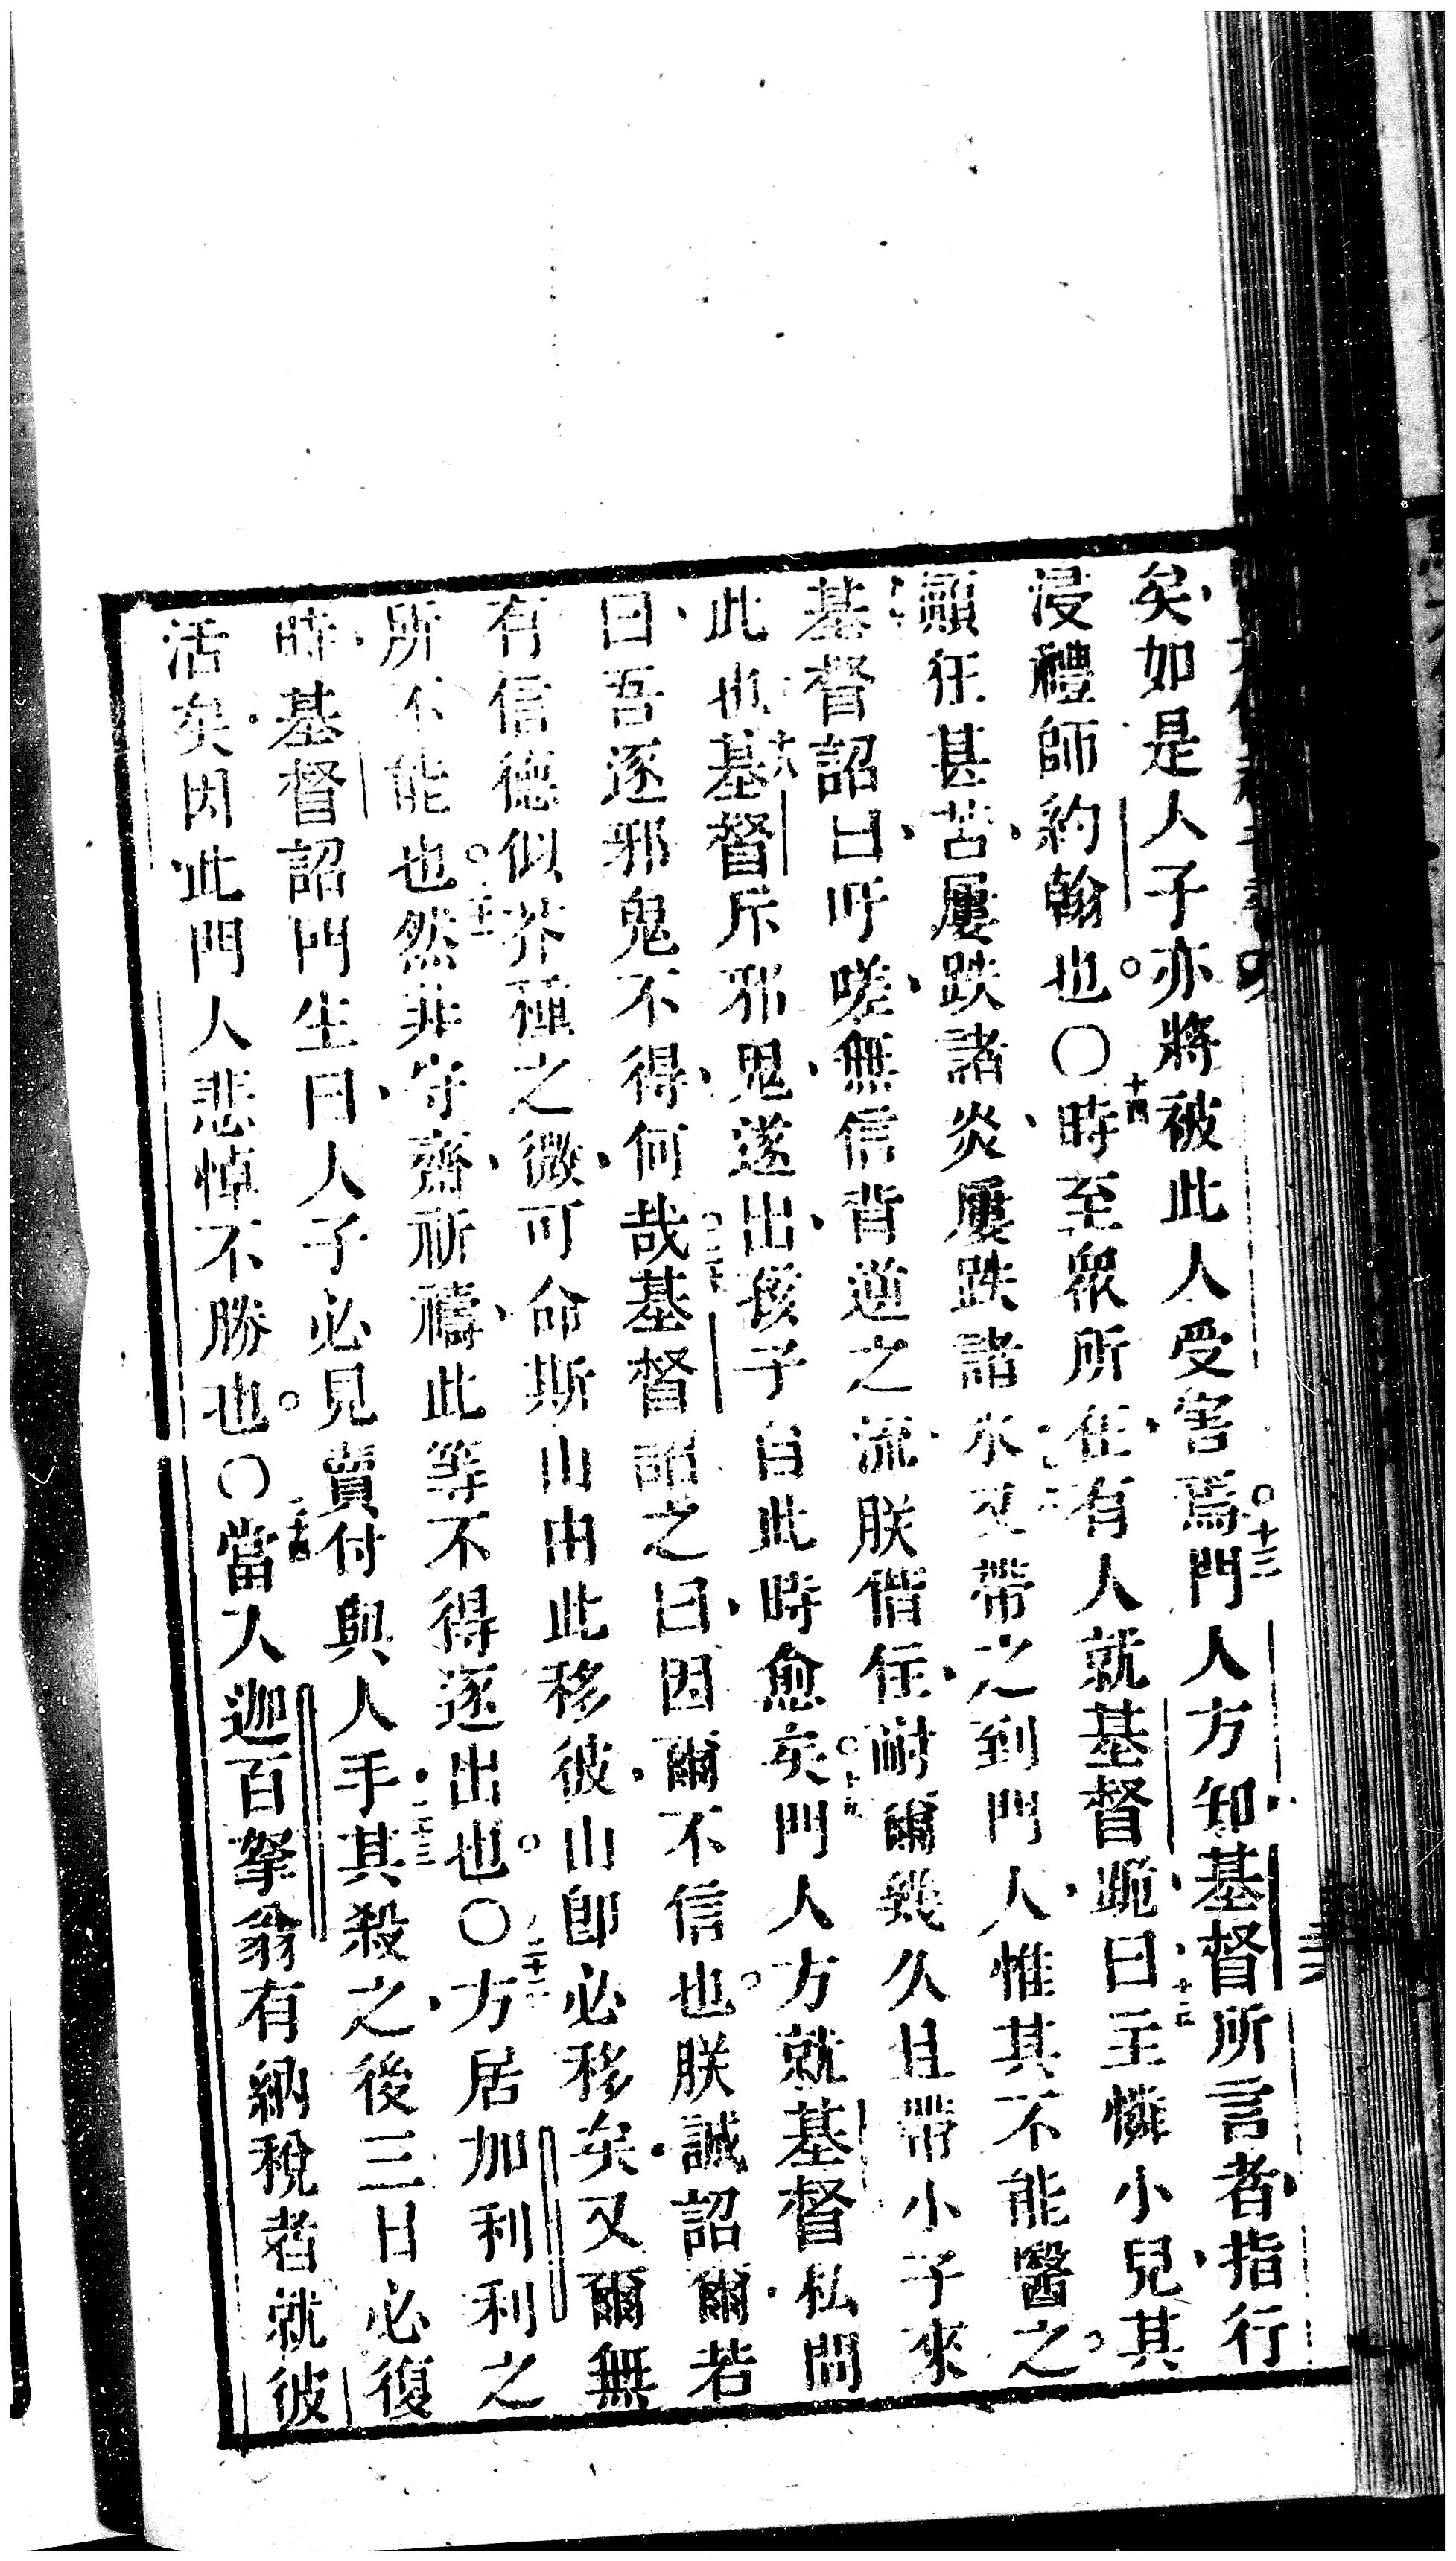 矣、如是人子亦將被此人受害焉。十三門人方知、基督所言者、指行
浸禮師約翰也。〇十四時至衆所在、有人就基督跪、曰、十五主憐小兒、其
顛狂甚苦、屢跌諸炎、屢跌諸水、又帶之到門人、惟其不能醫之。
基督詔曰、吁嗟、無信背逆之流、朕偕住耐爾幾久、且帶小子來
此也。十八基督斥邪鬼、遂出、孩子自此時愈矣。十九門人方就基督私問
曰、吾逐邪鬼不得、何哉。二十基督詔之曰、因爾不信也。朕誠詔爾、若
有信德似芥種之微、可命斯山由此移彼、山卽必移矣、又爾無
所不能也。然非守齋、祈禱、此等不得逐出也。〇二十二方居加利利之
時、基督詔門生曰、人子必見賣付與人手、二十三其殺之、後三日必復
活矣、因此門人悲悼不勝也。〇二十四當入迦百拏翁有納稅者就彼